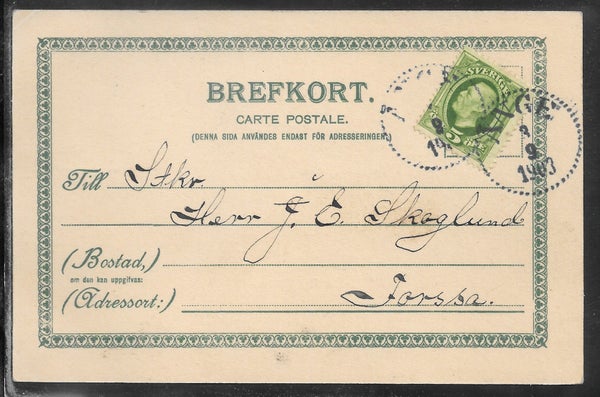 BREFKORT.
CARTE POSTALE.
(DENNA SIDA ANVÄNDES ENDAST FÖR ADRESSERINGEN
SVERIGE
5 ÖRE
8
19
8
9
1903
Till Stkr.
Herr J. E. Skoglund
(Bostad,)
om den kan uppgifvas:
(Adressort:) Forssa.